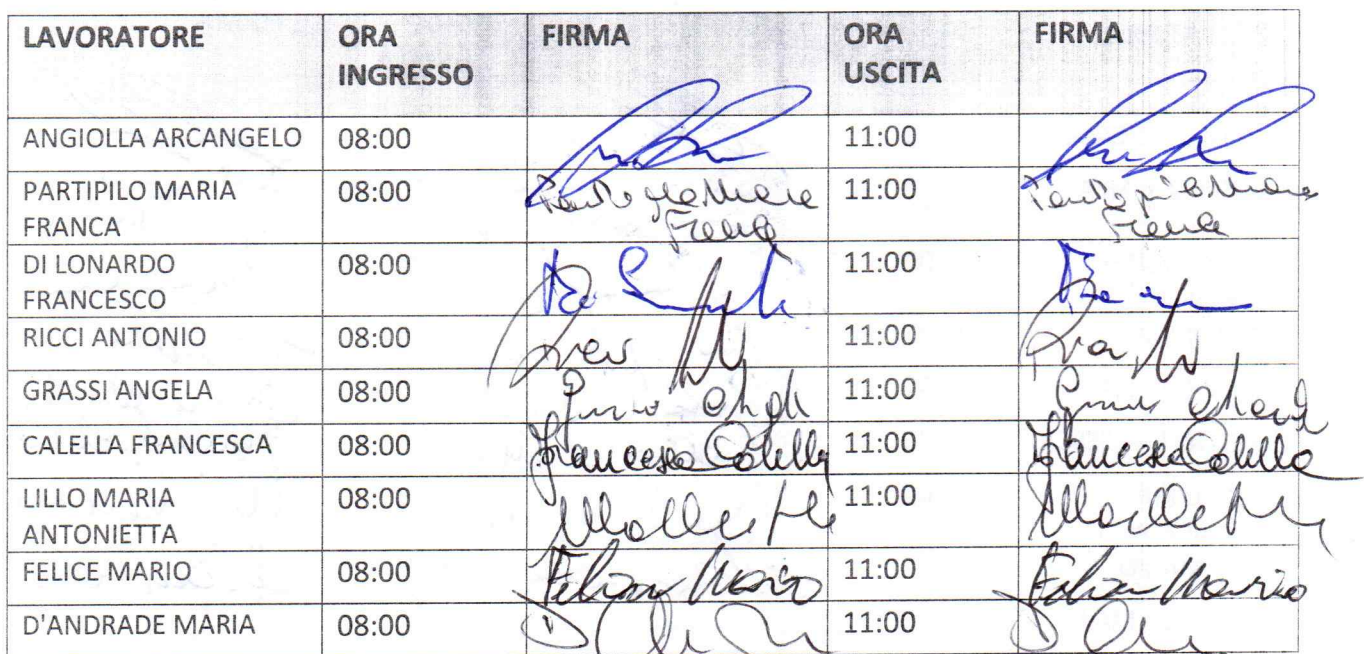 LAVORATORE ORA INGRESSO FIRMA ORA USCITA FIRMA
ANGIOLLA ARCANGELO 08:00 11:00
PARTIPILO MARIA FRANCA 08:00 11:00
DI LONARDO FRANCESCO 08:00 11:00
RICCI ANTONIO 08:00 11:00
GRASSI ANGELA 08:00 11:00
CALELLA FRANCESCA 08:00 Francesca Colella 11:00 Francesca Colella
LILLO MARIA ANTONIETTA 08:00 11:00
FELICE MARIO 08:00 Mario 11:00 Mario
D'ANDRADE MARIA 08:00 11:00